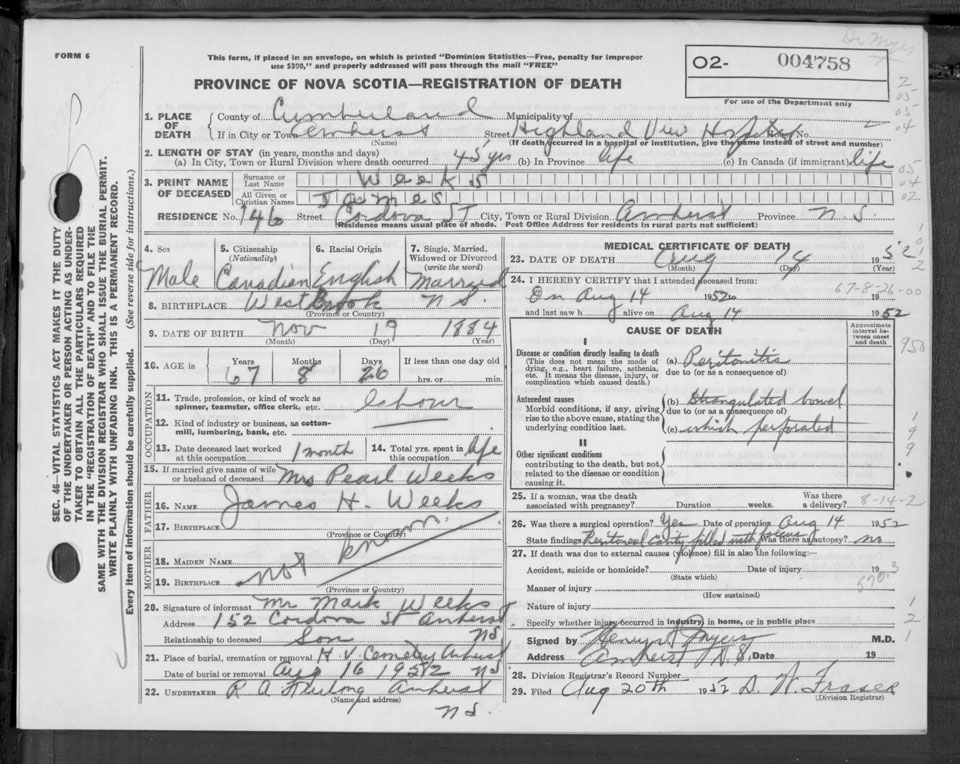 FORM 6
This form, if placed in an envelope, on which is printed "Dominion Statistics—Free, penalty for improper
use $300," and properly addressed will pass through the mail "FREE"
PROVINCE OF NOVA SCOTIA—REGISTRATION OF DEATH
Dr Myers
O2- 004758
For use of the Department only
SEC. 46—VITAL STATISTICS ACT MAKES IT THE DUTY
OF THE UNDERTAKER OR PERSON ACTING AS UNDER-
TAKER TO OBTAIN ALL THE PARTICULARS REQUIRED
IN THE "REGISTRATION OF DEATH" AND TO FILE THE
SAME WITH THE DIVISION REGISTRAR WHO SHALL ISSUE THE BURIAL PERMIT.
WRITE PLAINLY WITH UNFADING INK. THIS IS A PERMANENT RECORD.
Every item of information should be carefully supplied. (See reverse side for instructions.)
1. PLACE OF DEATH
County of Cumberland Municipality of
If in City or Town Amherst Street Highland View Hospital No.
(Name) (If death occurred in a hospital or institution, give the name instead of street and number)
2. LENGTH OF STAY (in years, months and days)
(a) In City, Town or Rural Division where death occurred 45 yrs (b) In Province life (c) In Canada (if immigrant) life
3. PRINT NAME OF DECEASED
Surname or Last Name Weeks
All Given or Christian Names James
RESIDENCE No. 146 Street Cordova ST City, Town or Rural Division Amherst Province N.S.
(Residence means usual place of abode. Post Office Address for residents in rural parts not sufficient)
4. Sex 5. Citizenship (Nationality) 6. Racial Origin 7. Single, Married, Widowed or Divorced (write the word)
Male Canadian English Married
8. BIRTHPLACE Westbrook N S.
(Province or Country)
9. DATE OF BIRTH Nov 19 1884
(Month) (Day) (Year)
10. AGE in Years Months Days If less than one day old
67 8 26 hrs. or min.
OCCUPATION
11. Trade, profession, or kind of work as
spinner, teamster, office clerk, etc. Labour
12. Kind of industry or business, as cotton-
mill, lumbering, bank, etc.
13. Date deceased last worked at this occupation 1 month 14. Total yrs. spent in this occupation life
15. If married give name of wife
or husband of deceased Mrs Pearl Weeks
FATHER
16. NAME James H. Weeks
17. BIRTHPLACE
(Province or Country)
MOTHER
18. MAIDEN NAME
not known
19. BIRTHPLACE
(Province or Country)
20. Signature of informant Mr Mark Weeks
Address 152 Cordova St Amherst
Relationship to deceased Son NS
21. Place of burial, cremation or removal H. V. Cemetery Amherst
Date of burial or removal Aug 16 1952 NS
22. UNDERTAKER R A Furlong Amherst
(Name and address)
NS.
MEDICAL CERTIFICATE OF DEATH
23. DATE OF DEATH Aug 14 1952
(Month) (Day) (Year)
24. I HEREBY CERTIFY that I attended deceased from:
67-8-26-00
On Aug 14 1952 to 19
and last saw h alive on Aug 14 1952
CAUSE OF DEATH
Approximate interval between onset and death
I
Disease or condition directly leading to death (a) Peritonitis
(This does not mean the mode of dying, e.g., heart failure, asthenia, etc. It means the disease, injury, or complication which caused death.) due to (or as a consequence of)
Antecedent causes (b) Strangulated bowel
Morbid conditions, if any, giving rise to the above cause, stating the underlying condition last. due to (or as a consequence of)
(c) which perforated
II
Other significant conditions
contributing to the death, but not related to the disease or condition causing it.
25. If a woman, was the death associated with pregnancy? Duration weeks. Was there a delivery? 8-14-2
26. Was there a surgical operation? Yes Date of operation Aug 14 1952
State findings Peritoneal Cavity filled with Was there an autopsy? no
27. If death was due to external causes (violence) fill in also the following:—
Accident, suicide or homicide? Date of injury 19
(State which)
570.5
Manner of injury
(How sustained)
Nature of injury
Specify whether injury occurred in industry, in home, or in public place
Signed by Henry Myers M.D.
Address Amherst N.S. Date 19
28. Division Registrar's Record Number
29. Filed Aug 20th 1952 D. W. Fraser
(Division Registrar)